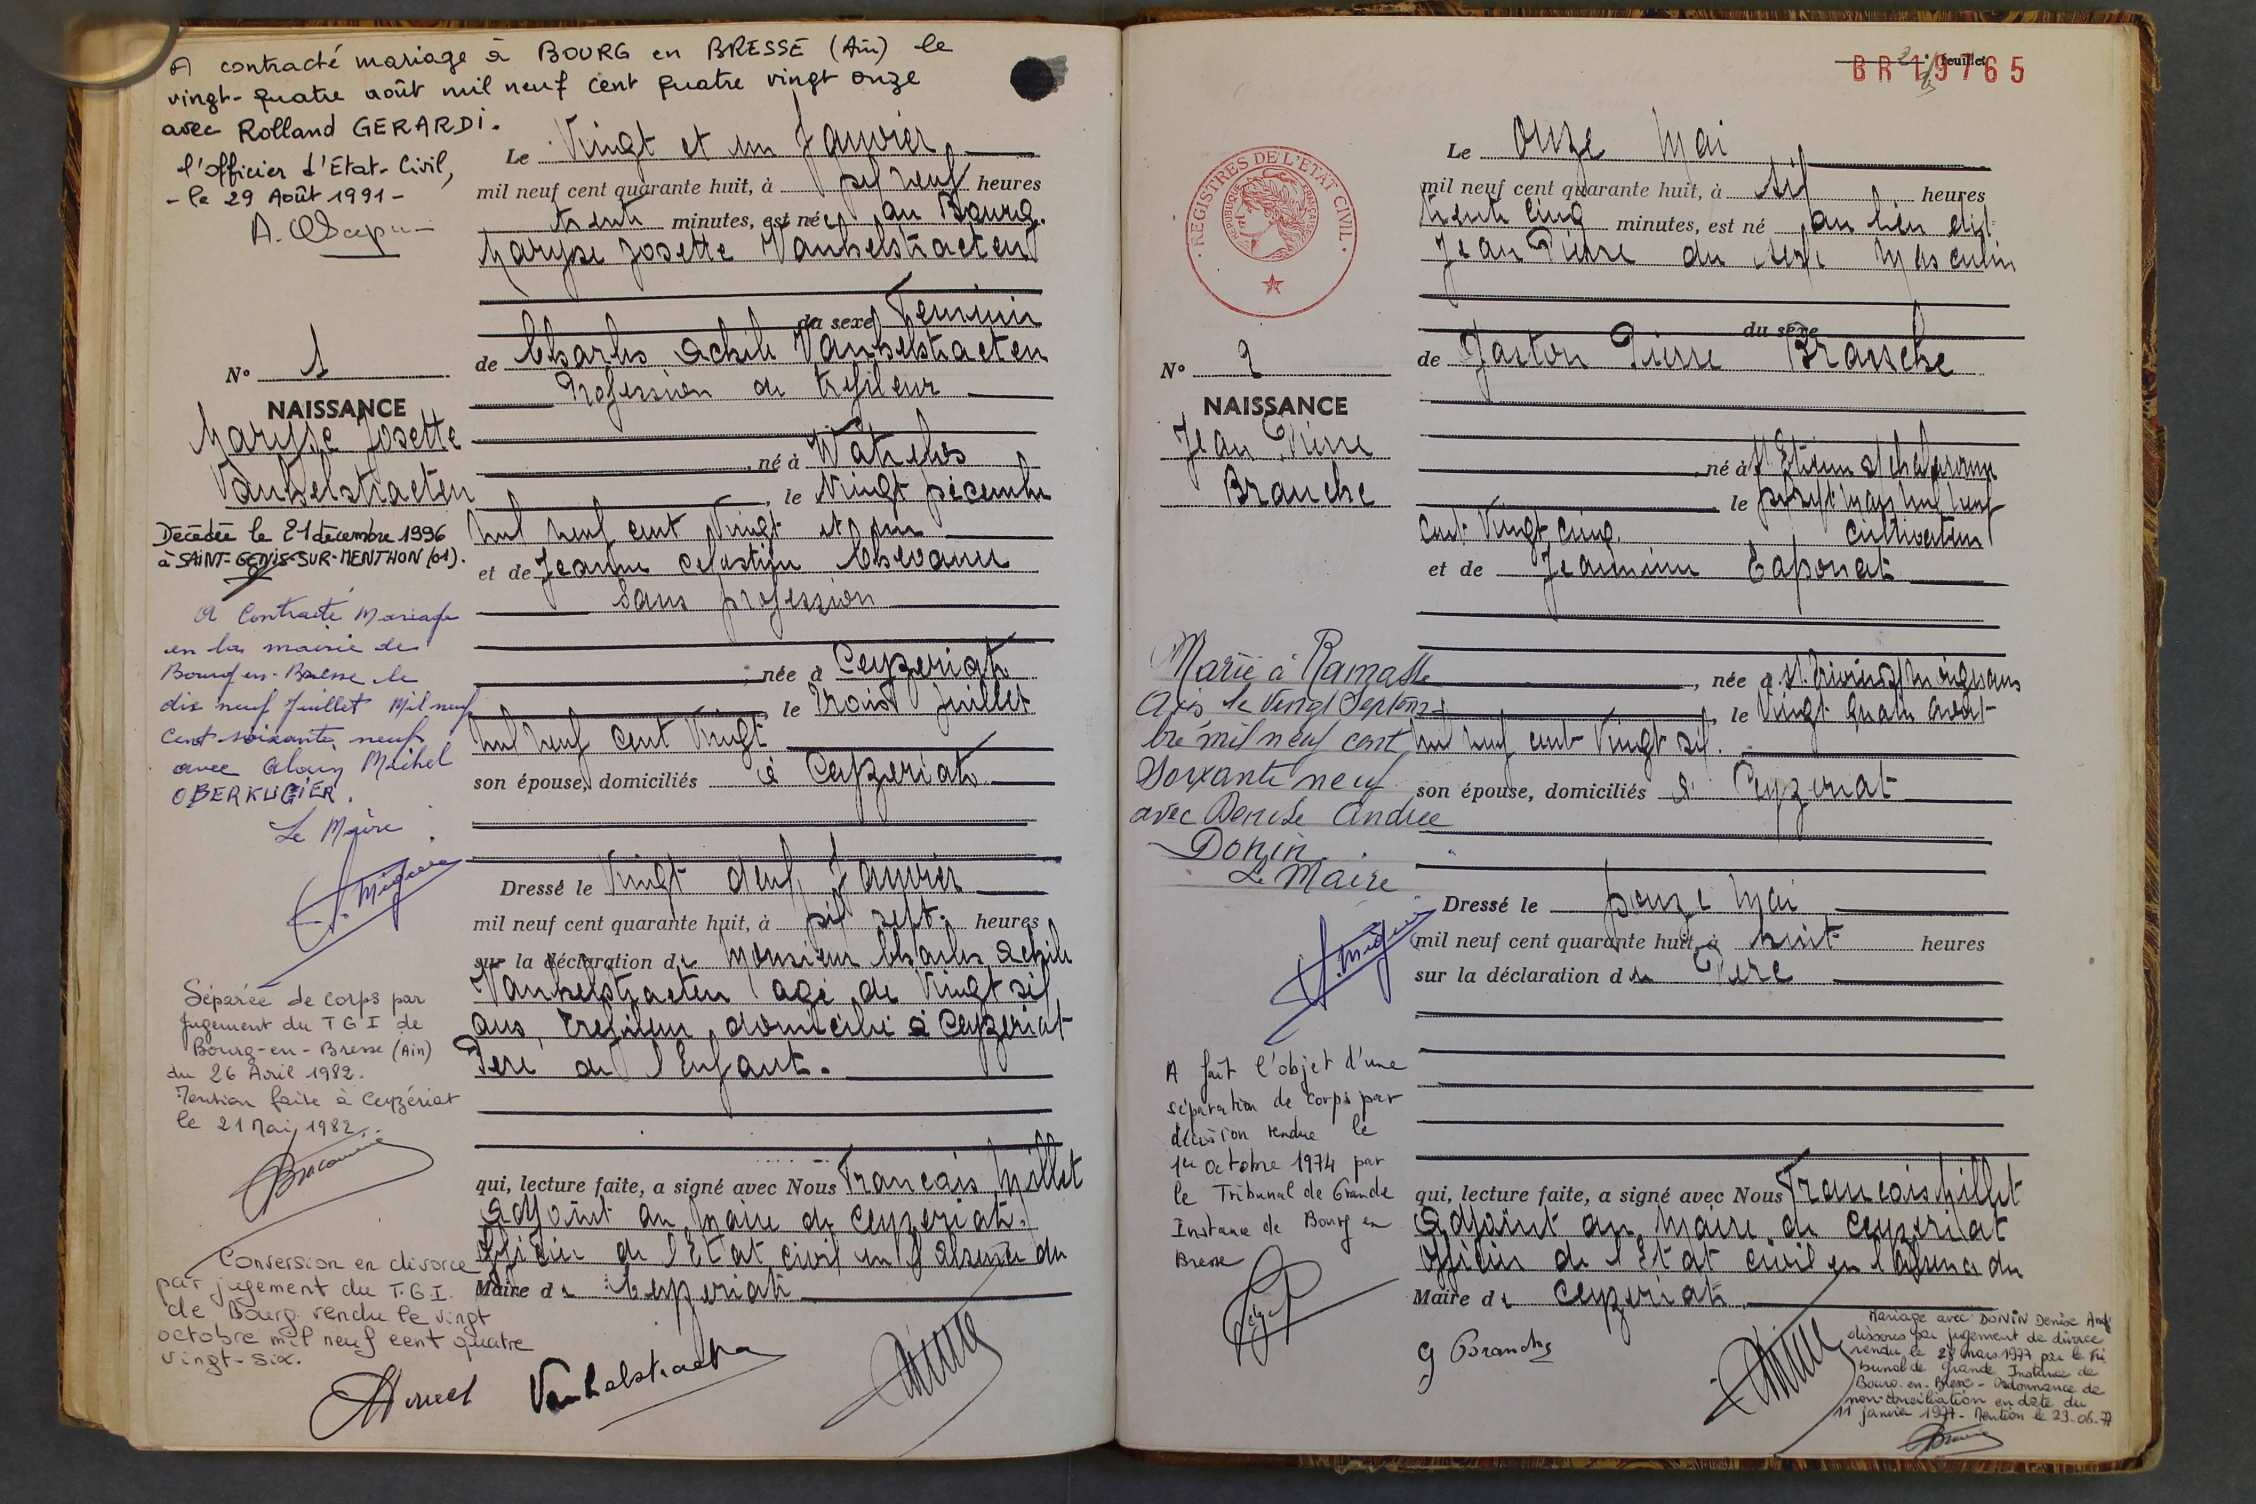 A contracté mariage à BOURG en BRESSE (Ain) le
vingt-quatre août mil neuf cent quatre vingt onze
avec Rolland GERARDI.
l'Officier d'Etat-Civil,
- le 29 Août 1991 -
Le Vingt et un Janvier
mil neuf cent quarante huit, à dix neuf heures
trente minutes, est né au Bourg.
Maryse Josette Vanhelstraeten
du sexe Feminin
de Charles Achile Vanhelstraeten
Profession de trefileur
né à Watrelos
, le Vingt Décembre
mil neuf cent Vingt et un
et de Jeanne Celestine Chevanu
Sans profession
née à Ceyzeriat
, le Trois Juillet
mil neuf cent Vingt
son épouse, domiciliés à Ceyzeriat
Dressé le Vingt deux Janvier
mil neuf cent quarante huit, à dix sept heures
sur la déclaration de Monsieur Charles Achile
Vanhelstraeten agé de Vingt six
ans, trefileur domicilié à Ceyzeriat
Père de l'Enfant.
qui, lecture faite, a signé avec Nous Francois Millet
Adjoint au Maire de Ceyzeriat.
Officier de l'Etat civil en l'absence du
Maire de Ceyzeriat
Vanhelstraeten
N° 1
NAISSANCE
Maryse Josette
Vanhelstraeten
Décédée le 21 décembre 1996
à SAINT-GENIS-SUR-MENTHON (01).
A Contracté Mariage
en la mairie de
Bourg-en-Bresse le
dix neuf Juillet Mil neuf
Cent soixante neuf
avec Alain Michel
OBERKUGIER.
Le Maire
Séparée de corps par
Jugement du T G I de
Bourg-en-Bresse (Ain)
du 26 Avril 1982.
Mention faite à Ceyzériat
le 21 Mai 1982.
Conversion en divorce
par jugement du T.G.I.
de Bourg rendu le vingt
octobre mil neuf cent quatre
vingt-six.
feuillet
BR 19765
REGISTRES DE L'ÉTAT CIVIL
RÉPUBLIQUE FRANÇAISE
Le Onze Mai
mil neuf cent quarante huit, à six heures
trente cinq minutes, est né au lieu dit
Jean Pierre du sexe Masculin
du sexe
de Gaston Pierre Branche
né à St Etienne s/ Chalaronne
le dix sept Mars mil neuf
cent Vingt cinq cultivateur
et de Jeannine Taponat
, née à St. Trivier s/ Moignans
, le Vingt quatre Avril
mil neuf cent Vingt six.
son épouse, domiciliés à Ceyzeriat
Dressé le Douze Mai
mil neuf cent quarante huit, à huit heures
sur la déclaration du Père
qui, lecture faite, a signé avec Nous Francois Millet
Adjoint au Maire de Ceyzeriat
Officier de l'Etat civil en l'absence du
Maire de Ceyzeriat
G Branche
N° 2
NAISSANCE
Jean Pierre
Branche
Marié à Ramasse
Ain le Vingt Septem-
bre mil neuf cent
Soixante neuf
avec Denise Andrée
Donin
Le Maire
A fait l'objet d'une
séparation de corps par
décision rendue le
1er octobre 1974 par
le Tribunal de Grande
Instance de Bourg en
Bresse
Mariage avec DONIN Denise And
dissous par jugement de divorce
rendu le 28 mars 1977 par le Tri
bunal de Grande Instance de
Bourg-en-Bresse - Ordonnance de
non-conciliation en date du
11 janvier 1977. Mention le 23.06.77